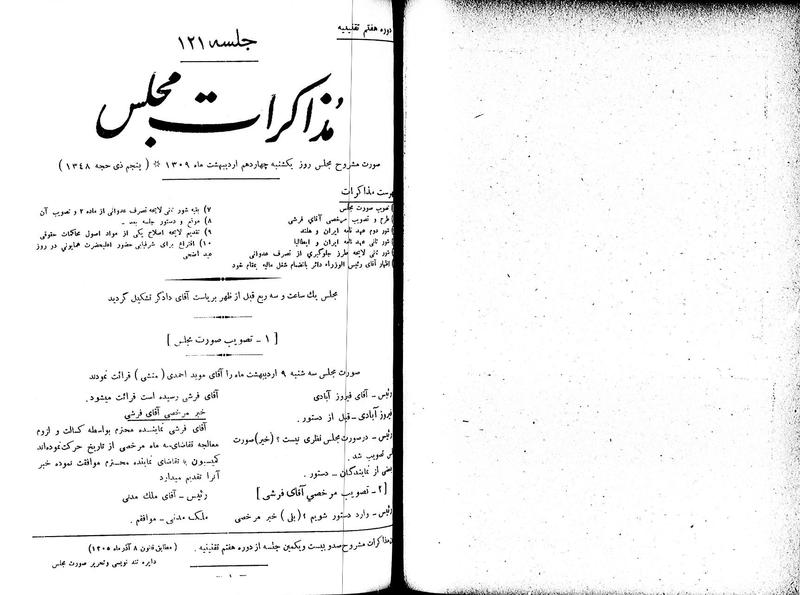 دوره هفتم تقنینیه
جلسه ۱۲۱
مذاکرات مجلس
صورت مشروح مجلس روز یکشنبه چهاردهم اردیبهشت ماه ۱۳۰۹ * ( پنجم ذی حجه ۱۳۴۸ )
فهرست مذاکرات
تصویب صورت مجلس
طرح و تصویب مرخصی آقای فرشی
شور دوم عهد نامه ایران و هلند
شور ثانی عهد نامه ایران و ایطالیا
شور ثانی لایحه طرز جلوگیری از تصرف عدوانی
اظهار آقای رئیس الوزراء دائر بانضمام شغل مالیه بمقام خود
۷) بقیه شور ثانی لایحه تصرف عدوانی از ماده ۲ و تصویب آن
۸) موقع و دستور جلسه بعد -
۹) تقدیم لایحه اصلاح یکی از مواد اصول محاکمات حقوقی
۱۰) اقتراع برای شرفیابی حضور اعلیحضرت همایونی در روز
عید اضحی
مجلس یک ساعت و سه ربع قبل از ظهر بریاست آقای دادگر تشکیل گردید
[ ۱ - تصویب صورت مجلس ]
صورت مجلس سه شنبه ۹ اردیبهشت ماه را آقای موید احمدی ( منشی ) قرائت نمودند
رئیس - آقای فیروز آبادی
فیروز آبادی - قبل از دستور .
رئیس - در صورت مجلس نظری نیست ؟ (خیر) صورت
مجلس تصویب شد .
بعضی از نمایندگان - دستور .
[ ۲ - تصویب مرخصی آقای فرشی ]
رئیس - وارد دستور شویم ؟ ( بلی ) خبر مرخصی
آقای فرشی رسیده است قرائت میشود .
خبر مرخصی آقای فرشی
آقای فرشی نماینده محترم بواسطه کسالت و لزوم
معالجه تقاضای سه ماه مرخصی از تاریخ حرکت نموده‌اند
کمیسیون با تقاضای نماینده محترم موافقت نموده خبر
آنرا تقدیم میدارد
رئیس - آقای ملک مدنی
ملک مدنی - موافقم .
مذاکرات مشروح صد و بیست و یکمین جلسه از دوره هفتم تقنینیه . ( مطابق قانون ۸ آذر ماه ۱۳۰۵ )
دایره تند نویسی و تحریر صورت مجلس
- ۱ -